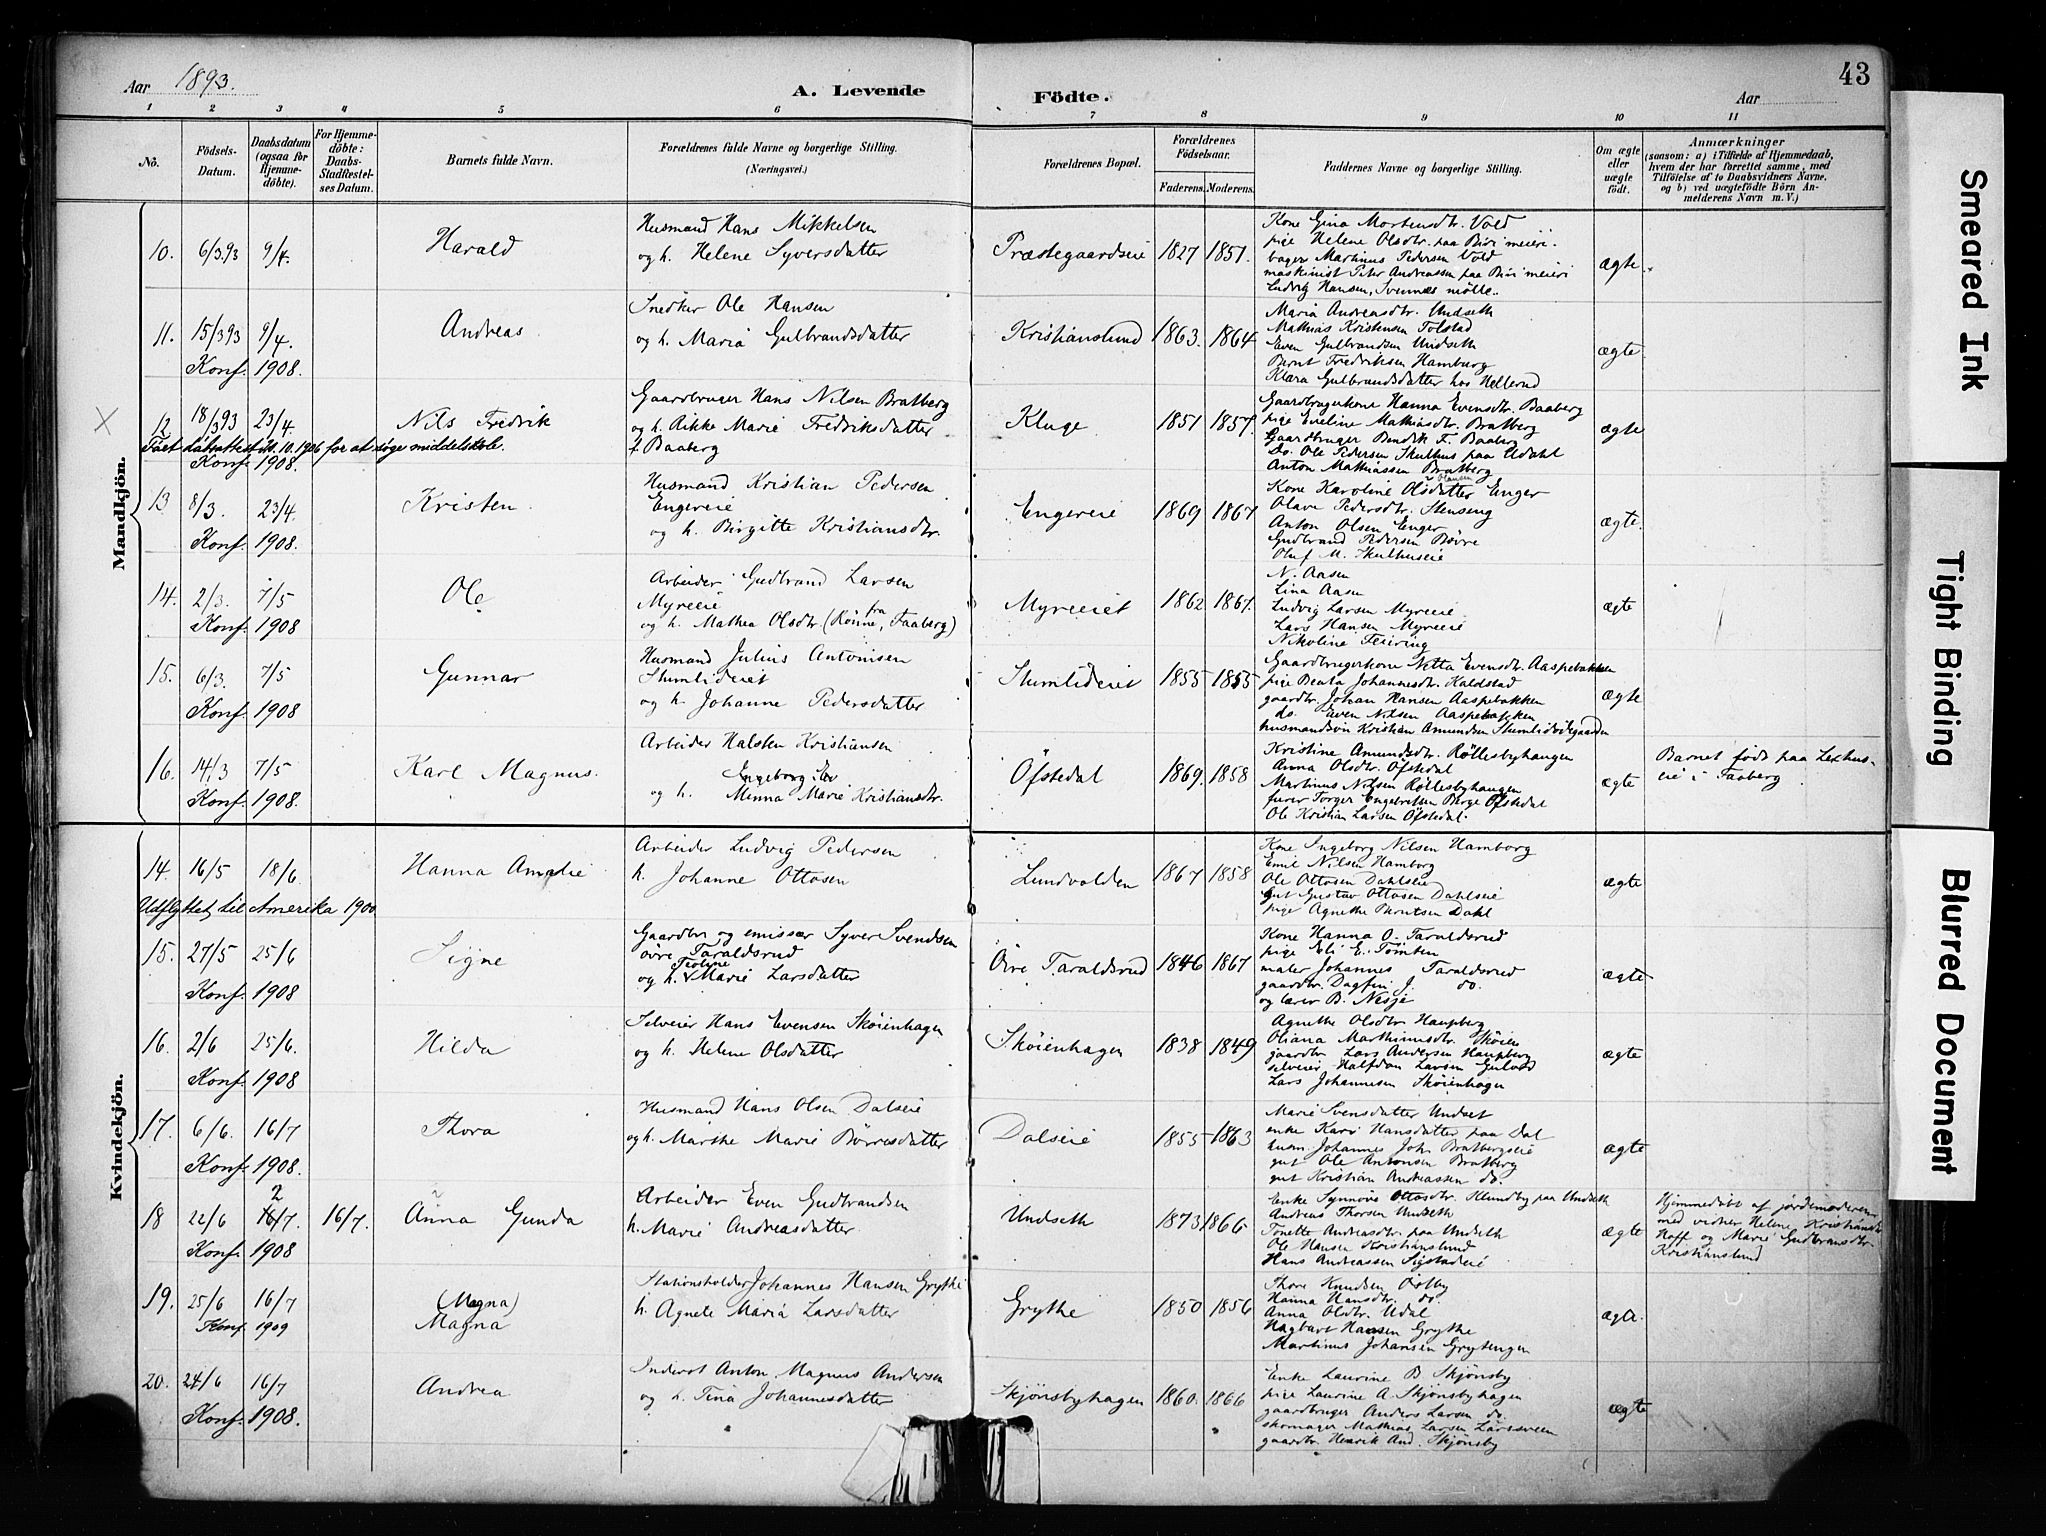 Aar 1893.
A. Levende Födte.
Aar
43
1 2 3 4 5 6 7 8 9 10 11
No.
Födsels-Datum.
Daabsdatum (ogsaa for Hjemmedöbte).
For Hjemmedöbte: Daabs-Stadfestelses Datum.
Barnets fulde Navn.
Forældrenes fulde Navne og borgerlige Stilling. (Næringsvei.)
Forældrenes Bopæl.
Forældrenes Födselsaar.
Faderens. Moderens.
Faddernes Navne og borgerlige Stilling.
Om ægte eller uægte födt.
Anmærkninger
(saasom: a) i Tilfælde af Hjemmedaab, hvem der har forrettet samme, med Tilföielse af to Daabsvidners Navne, og b) ved uægtefödte Börn Anmelderens Navn m. V.)
Mandkjön.
10. 6/3.93 9/4. Harald
Husmand Hans Mikkelsen
og h. Helene Syversdatter
Præstegaardseie 1827 1851.
Kone Gina Mortensdtr. Vold
pige Helene Olsdtr. paa Biri meieri.
bager Martinus Pedersen Vold
maskinist Peter Andreassen paa Biri meieri
Ludvig Hansen, Svennæs mölle.
ægte.
11. 15/3 93 9/4. Andreas
Konf. 1908.
Snedker Ole Hansen
og h. Maria Gulbrandsdatter
Kristianslund 1863. 1864
Maria Andreasdtr. Undseth
Mathias Kristensen Tolstad
Even Gulbrandsen Undseth
Bernt Fredriksen Hamburg
Klara Gulbrandsdatter hos Hellerud
ægte
12 18/3 93 23/4. Nils Fredrik
Faaet döbsattest 10.1906 for at söge middelskole.
Konf. 1908.
Gaardbruger Hans Nilsen Bratberg
og h. Rikke Marie Fredriksdatter
f. Baaberg
Kluge 1851 1857.
Gaardbrugerkone Hanna Evensdtr. Baaberg
pige Eveline Mathiasdtr. Bratberg
Gaardbruger Bendik F. Baaberg
Do. Ole Pedersen Skulhus paa Udahl
Anton Mathiassen Bratberg
ægte
13 8/3. 23/4. Kristen
Konf. 1908.
Husmand Kristian Pedersen
Engereie
og h. Birgitte Kristiansdtr.
Engereie 1869 1867
Kone Karoline Olsdatter Enger
Olave Pedersdtr. Stenseng
Anton Olsen Enger
Gudbrand Pedersen Bövre
Oluf M. Skulhuseie
ægte.
14. 2/3. 7/5 Ole
Konf. 1908
Arbeider Gudbrand Larsen
Myreeie
og h. Mathea Olsdtr. (Rönne, fra Faaberg)
Myreeiet 1862 1867.
N. Aasen
Lina Aasen
Ludvig Larsen Myreeie
Lars Hansen Myreeie
Nikoline Feiring
ægte
15. 6/3. 7/5 Gunnar
Konf. 1908
Husmand Julius Antonisen
Stumlideiet
og h. Johanne Pedersdatter
Stumlideiet 1855 1855
Gaardbrugerkone Netta Evensdtr. Aaspebakken
pige Beata Johannesdtr. Kaldstad
gaardbr. Johan Hansen Aaspebakken
do. Even Nilsen Aaspebakken
husmandssön Kristian Amundsen Stumlidödegaarden
ægte
16. 14/3 7/5 Karl Magnus.
Konf. 1908.
Arbeider Halsten Kristiansen
og h. Engeborg
Minna Marie Kristiansdtr.
Öfstedal 1869. 1858
Kristine Amundsdtr. Röllesbyhaugen
Anna Olsdtr. Öfstedal
Martinus Nilsen Röllesbyhaugen
furer Torger Engebretsen Berge Öfstedal
Ole Kristian Larsen Öfstedal.
ægte
Barnet födt paa
eie i Faaberg
Kvindekjön.
14. 16/5 18/6 Hanna Amalie
Udflyttet til Amerika 1900
Arbeider Ludvig Pedersen
h. Johanne Ottosen
Lundvolden 1867 1858
Kone Ingeborg Nilsen Hamborg
Emil Nilsen Hamborg
Ole Ottosen Dahlseie
gut Gustav Ottosen Dahlseie
pige Agnethe Berntsen Dahl
ægte
15. 27/5 25/6 Signe
Konf. 1908
Gaardbr og emissær Syver Svendsen
övre Taraldsrud
og h. Teoline Marie Larsdatter
Övre Taraldsrud 1846 1867
Kone Hanna O. Taraldsrud
pige Eli E. Tömten
maler Johannes Taraldsrud
gaardbr. Dagfin J. do.
og lærer B. Nesje
ægte
16. 2/6 25/6. Hilda
Konf. 1908
Selveier Hans Evensen Sköienhagen
og h. Helene Olsdatter
Sköienhagen 1838 1849
Agnethe Olsdtr Haupberg
Oliana Marthinusdtr. Sköien
gaardbr Lars Andersen Haupberg
selveier Halfdan Larsen
Lars Johannesen Sköienhagen
ægte
17. 6/6. 16/7 Thora
Konf. 1908.
Husmand Hans Olsen Dalseie
og h. Marthe Marie Börresdatter
Dalseie 1855 1863
Marie Svensdatter Undset
enke Kari Hansdatter paa Dal
husm. Johannes Joh. Bratbergseie
gut Ole Antonsen Bratberg
gut Kristian Andreassen do.
ægte
18 22/6 2/7. 16/7. Anna Gunda
Konf. 1908
Arbeider Even Gudbrandsen
h. Marie Andreasdatter
Undseth 1873 1866
Enke Synnöve Ottosdtr. Klundby paa Undseth
Andreas Thorsen Undseth
Tonette Andreasdtr. paa Undseth
Ole Hansen Kristianslund
Hans Andreassen Sigstadeie
ægte
Hjemmedöbt af jordemoderen
med vidner Helene Kristiansdtr
Hoff og Marie Gudbransdtr.
Kristianslund
19. 25/6 16/7 (Magna)
Magna
Konf. 1909
Stationsholder Johannes Hansen Grythe
h. Agnete Maria Larsdatter
Grythe 1850 1856
Thore Knudsen Östby
Hanna Hansdtr. do.
Anna Olsdtr. Udal
Hagbart Hansen Grythe
Martinus Johansen Grytengen
ægte.
20. 24/6 16/7 Andrea
Konf. 1908.
Inderst Anton Magnus Andersen
og h. Tina Johannesdatter
Skjönsbyhagen 1860. 1866
Enke Laurine B. Skjönsby
pige Laurine A. Skjönsbyhagen
gaardbruger Anders Larsen do.
skomager Mathias Larsen Larssveen
gaardbr. Henrik And. Skjönsby
ægte
Smeared Ink
Tight Binding
Blurred Document